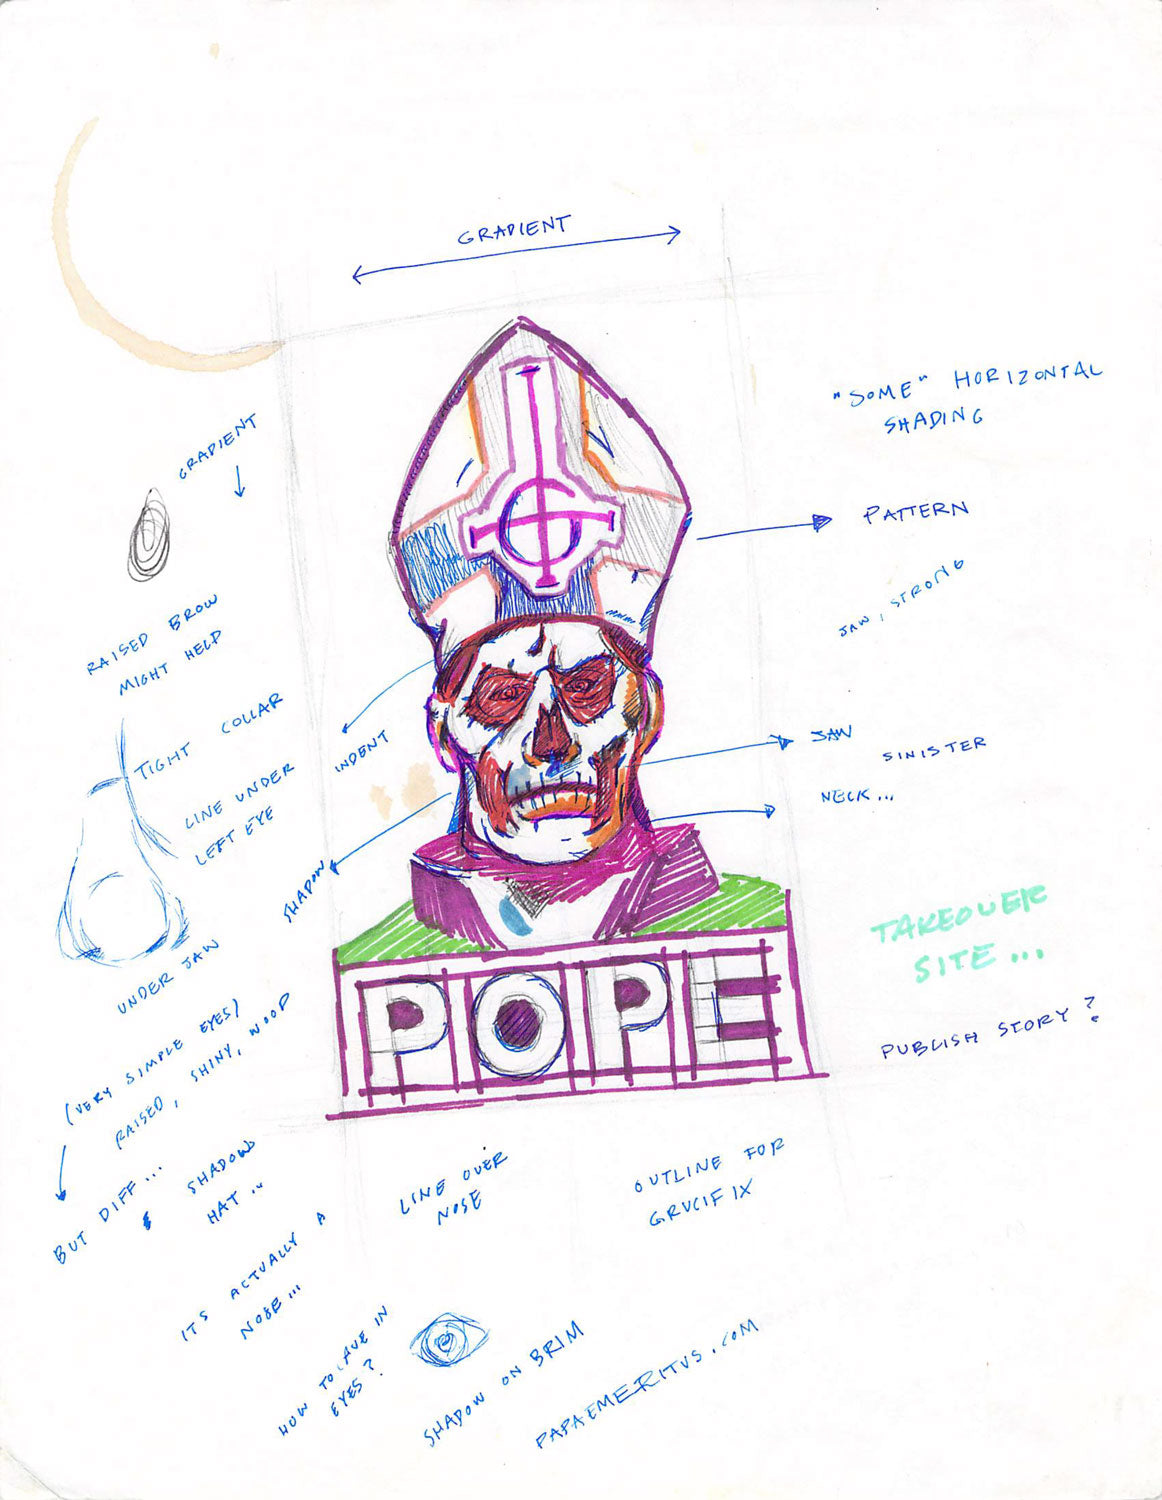 GRADIENT
"SOME" HORIZONTAL
SHADING
GRADIENT
PATTERN
JAW, STRONG
RAISED BROW
MIGHT HELP
TIGHT COLLAR
INDENT
JAW
SINISTER
LINE UNDER
LEFT EYE
NECK...
SHADOW
UNDER JAW
TAKEOVER
SITE...
POPE
PUBLISH STORY?
(VERY SIMPLE EYES)
RAISED, SHINY, WOOD
BUT DIFF...
SHADOW
HAT..
LINE OVER
NOSE
OUTLINE FOR
CRUCIFIX
ITS ACTUALLY A
NOSE...
HOW TO CAVE IN
EYES?
SHADOW ON BRIM
PAPAEMERITUS.COM